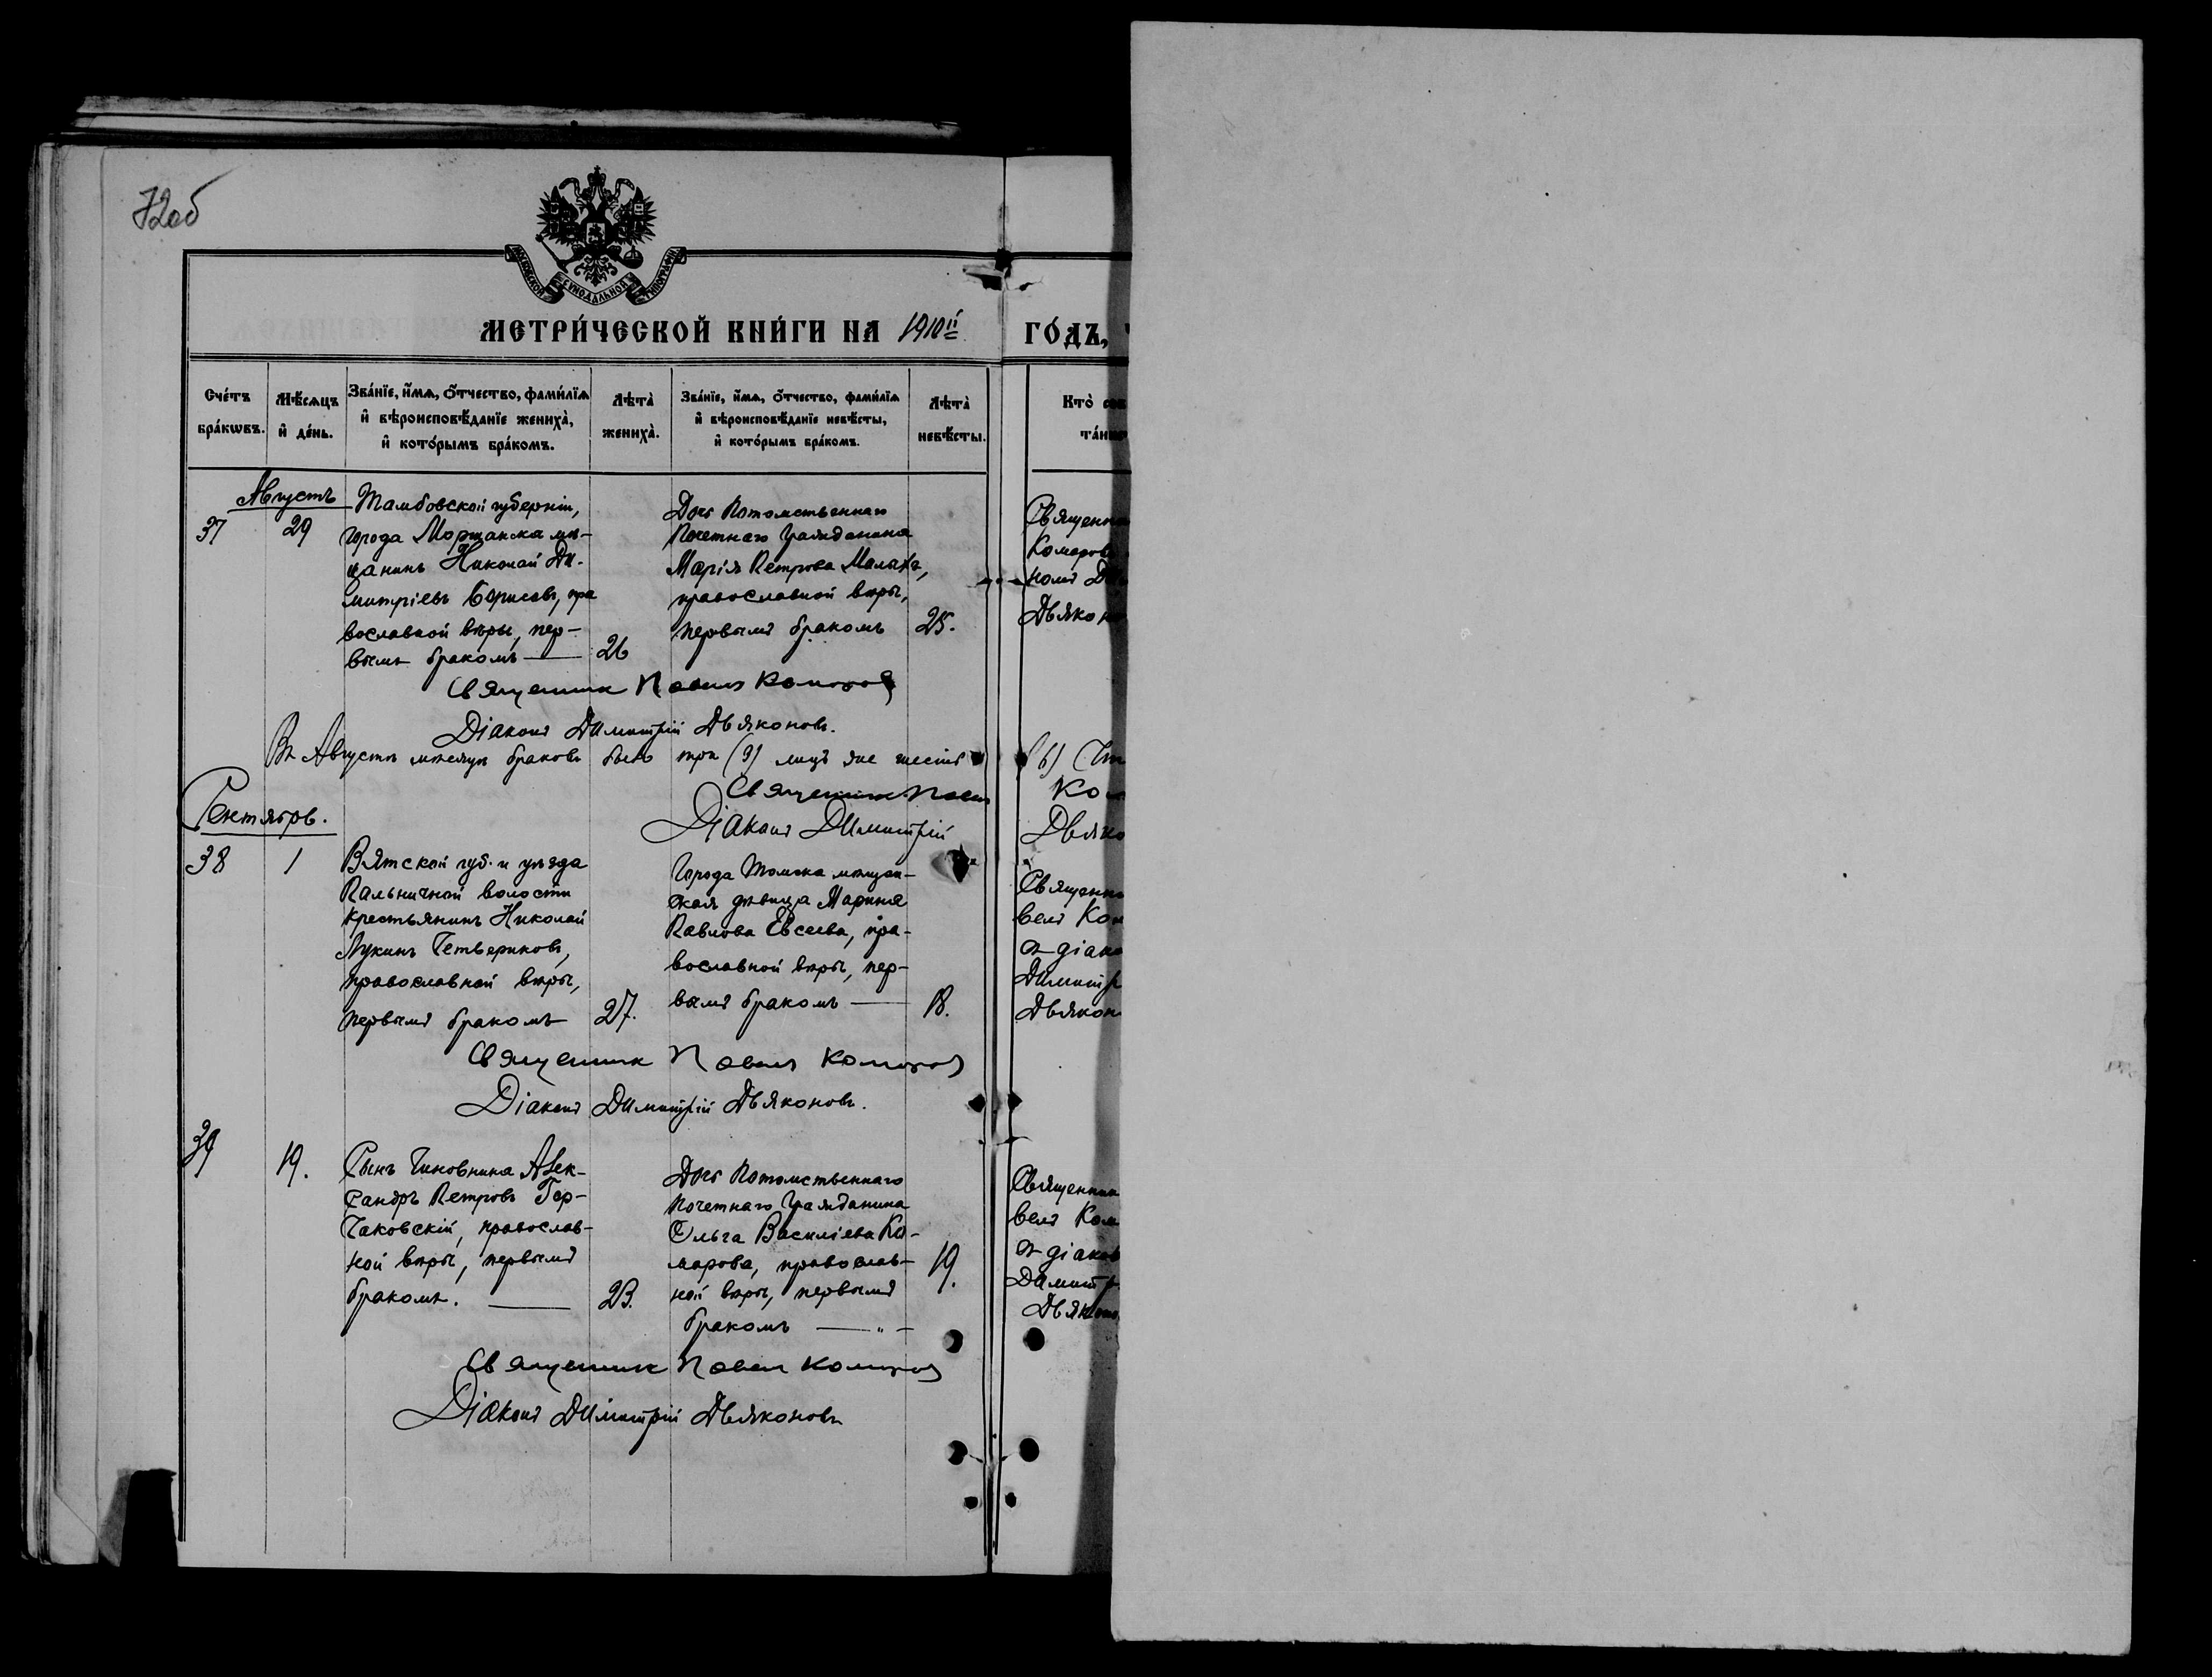 72об
МОСКОВСКОЙ СѴНОДАЛЬНОЙ ТИПОГРАФІИ
МЕТРИ́ЧЕСКОЙ КНИ́ГИ НА 1910й ГО́ДЪ,
Сче́тъ бра́кѡвъ.
Мѣ́сѧцъ и҆ де́нь.
Зва́нїе, и҆́мѧ, ѻ҆́тчество, фами́лїѧ и҆ вѣроисповѣ́данїе женихà, и҆ кото́рымъ бра́комъ.
Лѣтà женихà.
Зва́нїе, и҆́мѧ, ѻ҆́тчество, фами́лїѧ и҆ вѣроисповѣ́данїе невѣ́сты, и҆ кото́рымъ бра́комъ.
Лѣтà невѣ́сты.
Кто̀
Августъ
37
29
Тамбовской губерніи,
города Моршанска мѣ-
щанинъ Николай Ди-
митріевъ Борисовъ, пра
вославной вѣры, пер-
вымъ бракомъ —
26
Дочь Потомственнаго
Почетнаго Гражданина
Марія Петрова Малыхъ,
православной вѣры,
первымъ бракомъ
25.
Священни
Комаров
номъ
Дьяко
Священник Павел Комаров
Діаконъ Димитрій Дьяконовъ.
Въ Августѣ мѣсяцѣ браковъ было три (3) лицъ же шесть (6)
Священник Павел Ко
Діаконъ Димитрій Дьяко
Сентябрь.
38
1
Вятской губ. и уѣзда
волости
крестьянинъ Николай
Лукинъ Четвериковъ,
православной вѣры,
первымъ бракомъ
27.
Города Томска мѣщан-
ская дѣвица Марина
Павлова Евсеева, пра-
вославной вѣры, пер-
вымъ бракомъ —
18.
Священни
велъ Ком
съ діако
Димитр
Дьякон
Священник Павел Комаров
Діаконъ Димитрій Дьяконовъ.
39
19.
Сынъ Чиновника Алек-
сандръ Петровъ Гор-
чаковскій, православ-
ной вѣры, первымъ
бракомъ. —
23.
Дочь Потомственнаго
Почетнаго Гражданина
Ольга Василіева Ко-
марова, православ-
ной вѣры, первымъ
бракомъ — " —
19.
Священник
велъ Ком
съ діакон
Димитр
Дьяконо
Священник Павел Комаров
Діаконъ Димитрій Дьяконовъ